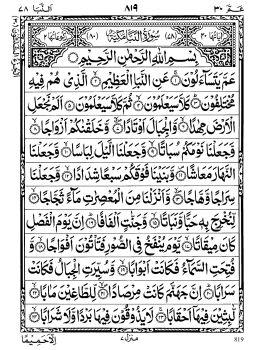 عَمَّ ٣٠
٨١٩
اَلنَّبَا ٧٨
سُوْرَةُ النَّبَاِ مَكِّيَّةٌ
بِسْمِ اللّٰهِ الرَّحْمٰنِ الرَّحِيْمِ
عَمَّ يَتَسَآءَلُوْنَ ۚ عَنِ النَّبَاِ الْعَظِيْمِ ۙ الَّذِيْ هُمْ فِيْهِ
مُخْتَلِفُوْنَ ؕ كَلَّا سَيَعْلَمُوْنَ ۙ ثُمَّ كَلَّا سَيَعْلَمُوْنَ اَلَمْ نَجْعَلِ
الْاَرْضَ مِهٰدًا ۙ وَّالْجِبَالَ اَوْتَادًا ۙ وَّخَلَقْنٰكُمْ اَزْوَاجًا ۙ
وَّجَعَلْنَا نَوْمَكُمْ سُبَاتًا ۙ وَّجَعَلْنَا الَّيْلَ لِبَاسًا ۙ وَّجَعَلْنَا
النَّهَارَ مَعَاشًا ۪ وَّبَنَيْنَا فَوْقَكُمْ سَبْعًا شِدَادًا ۙ وَّجَعَلْنَا
سِرَاجًا وَّهَّاجًا ۪ۙ وَّاَنْزَلْنَا مِنَ الْمُعْصِرٰتِ مَآءً ثَجَّاجًا ۙ
لِّنُخْرِجَ بِهٖ حَبًّا وَّنَبَاتًا ۙ وَّجَنّٰتٍ اَلْفَافًا ؕ اِنَّ يَوْمَ الْفَصْلِ
كَانَ مِيْقَاتًا ۙ يَّوْمَ يُنْفَخُ فِي الصُّوْرِ فَتَاْتُوْنَ اَفْوَاجًا ۙ وَّ
فُتِحَتِ السَّمَآءُ فَكَانَتْ اَبْوَابًا ۙ وَّسُيِّرَتِ الْجِبَالُ فَكَانَتْ
سَرَابًا ؕ اِنَّ جَهَنَّمَ كَانَتْ مِرْصَادًا ۪ۙ لِّلطَّاغِيْنَ مَاٰبًا ۙ
لّٰبِثِيْنَ فِيْهَآ اَحْقَابًا ۚ لَا يَذُوْقُوْنَ فِيْهَا بَرْدًا وَّلَا شَرَابًا ۙ
اِلَّا حَمِيْمًا
منزل ٧
819